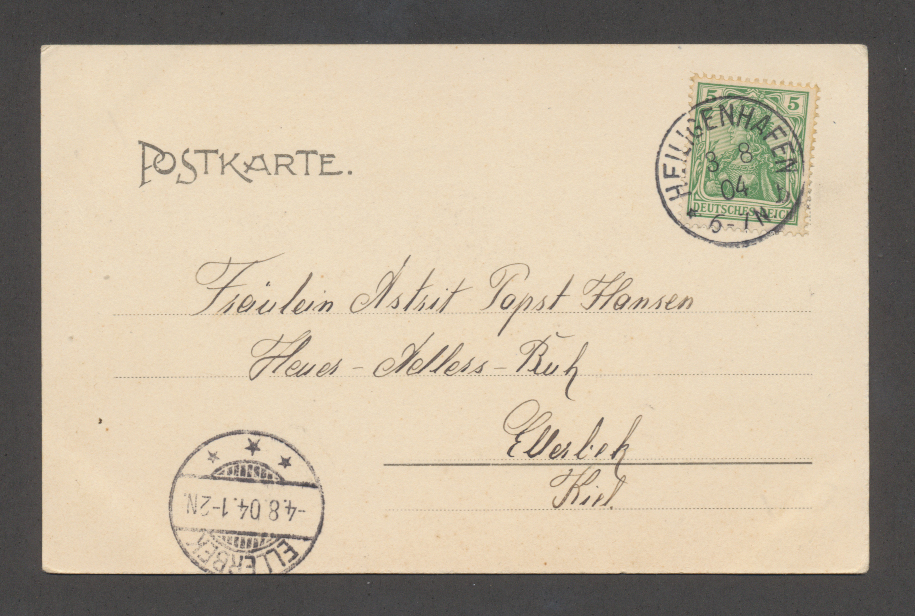 POSTKARTE.
5 5
DEUTSCHES REICH
HEILIGENHAFEN
3 8
04
* 6-7N b
Fräulein Astrit Topst Hansen
Heues-Adlers-Ruh
Ellerbek
Kiel.
-4.8.04.1-2N.
ELLERBEK